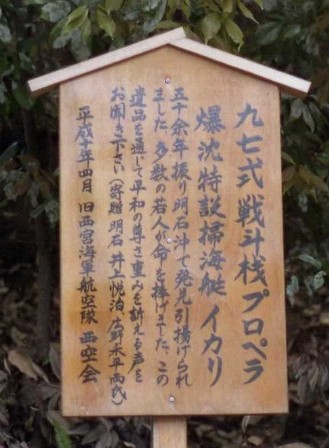 九七弐戦斗栈プロペラ
爆沈特設掃海艇イカリ
五十余年振り明石沖で発見引揚げられ
ました 多数の若人が命を捧げました この
遺品を通じて平和の尊さ重みを訴える声を
お聞き下さい(寄贈 明石 井上悦治 広野末平両氏)
平成十年四月 旧西宮海軍航空隊 西空会